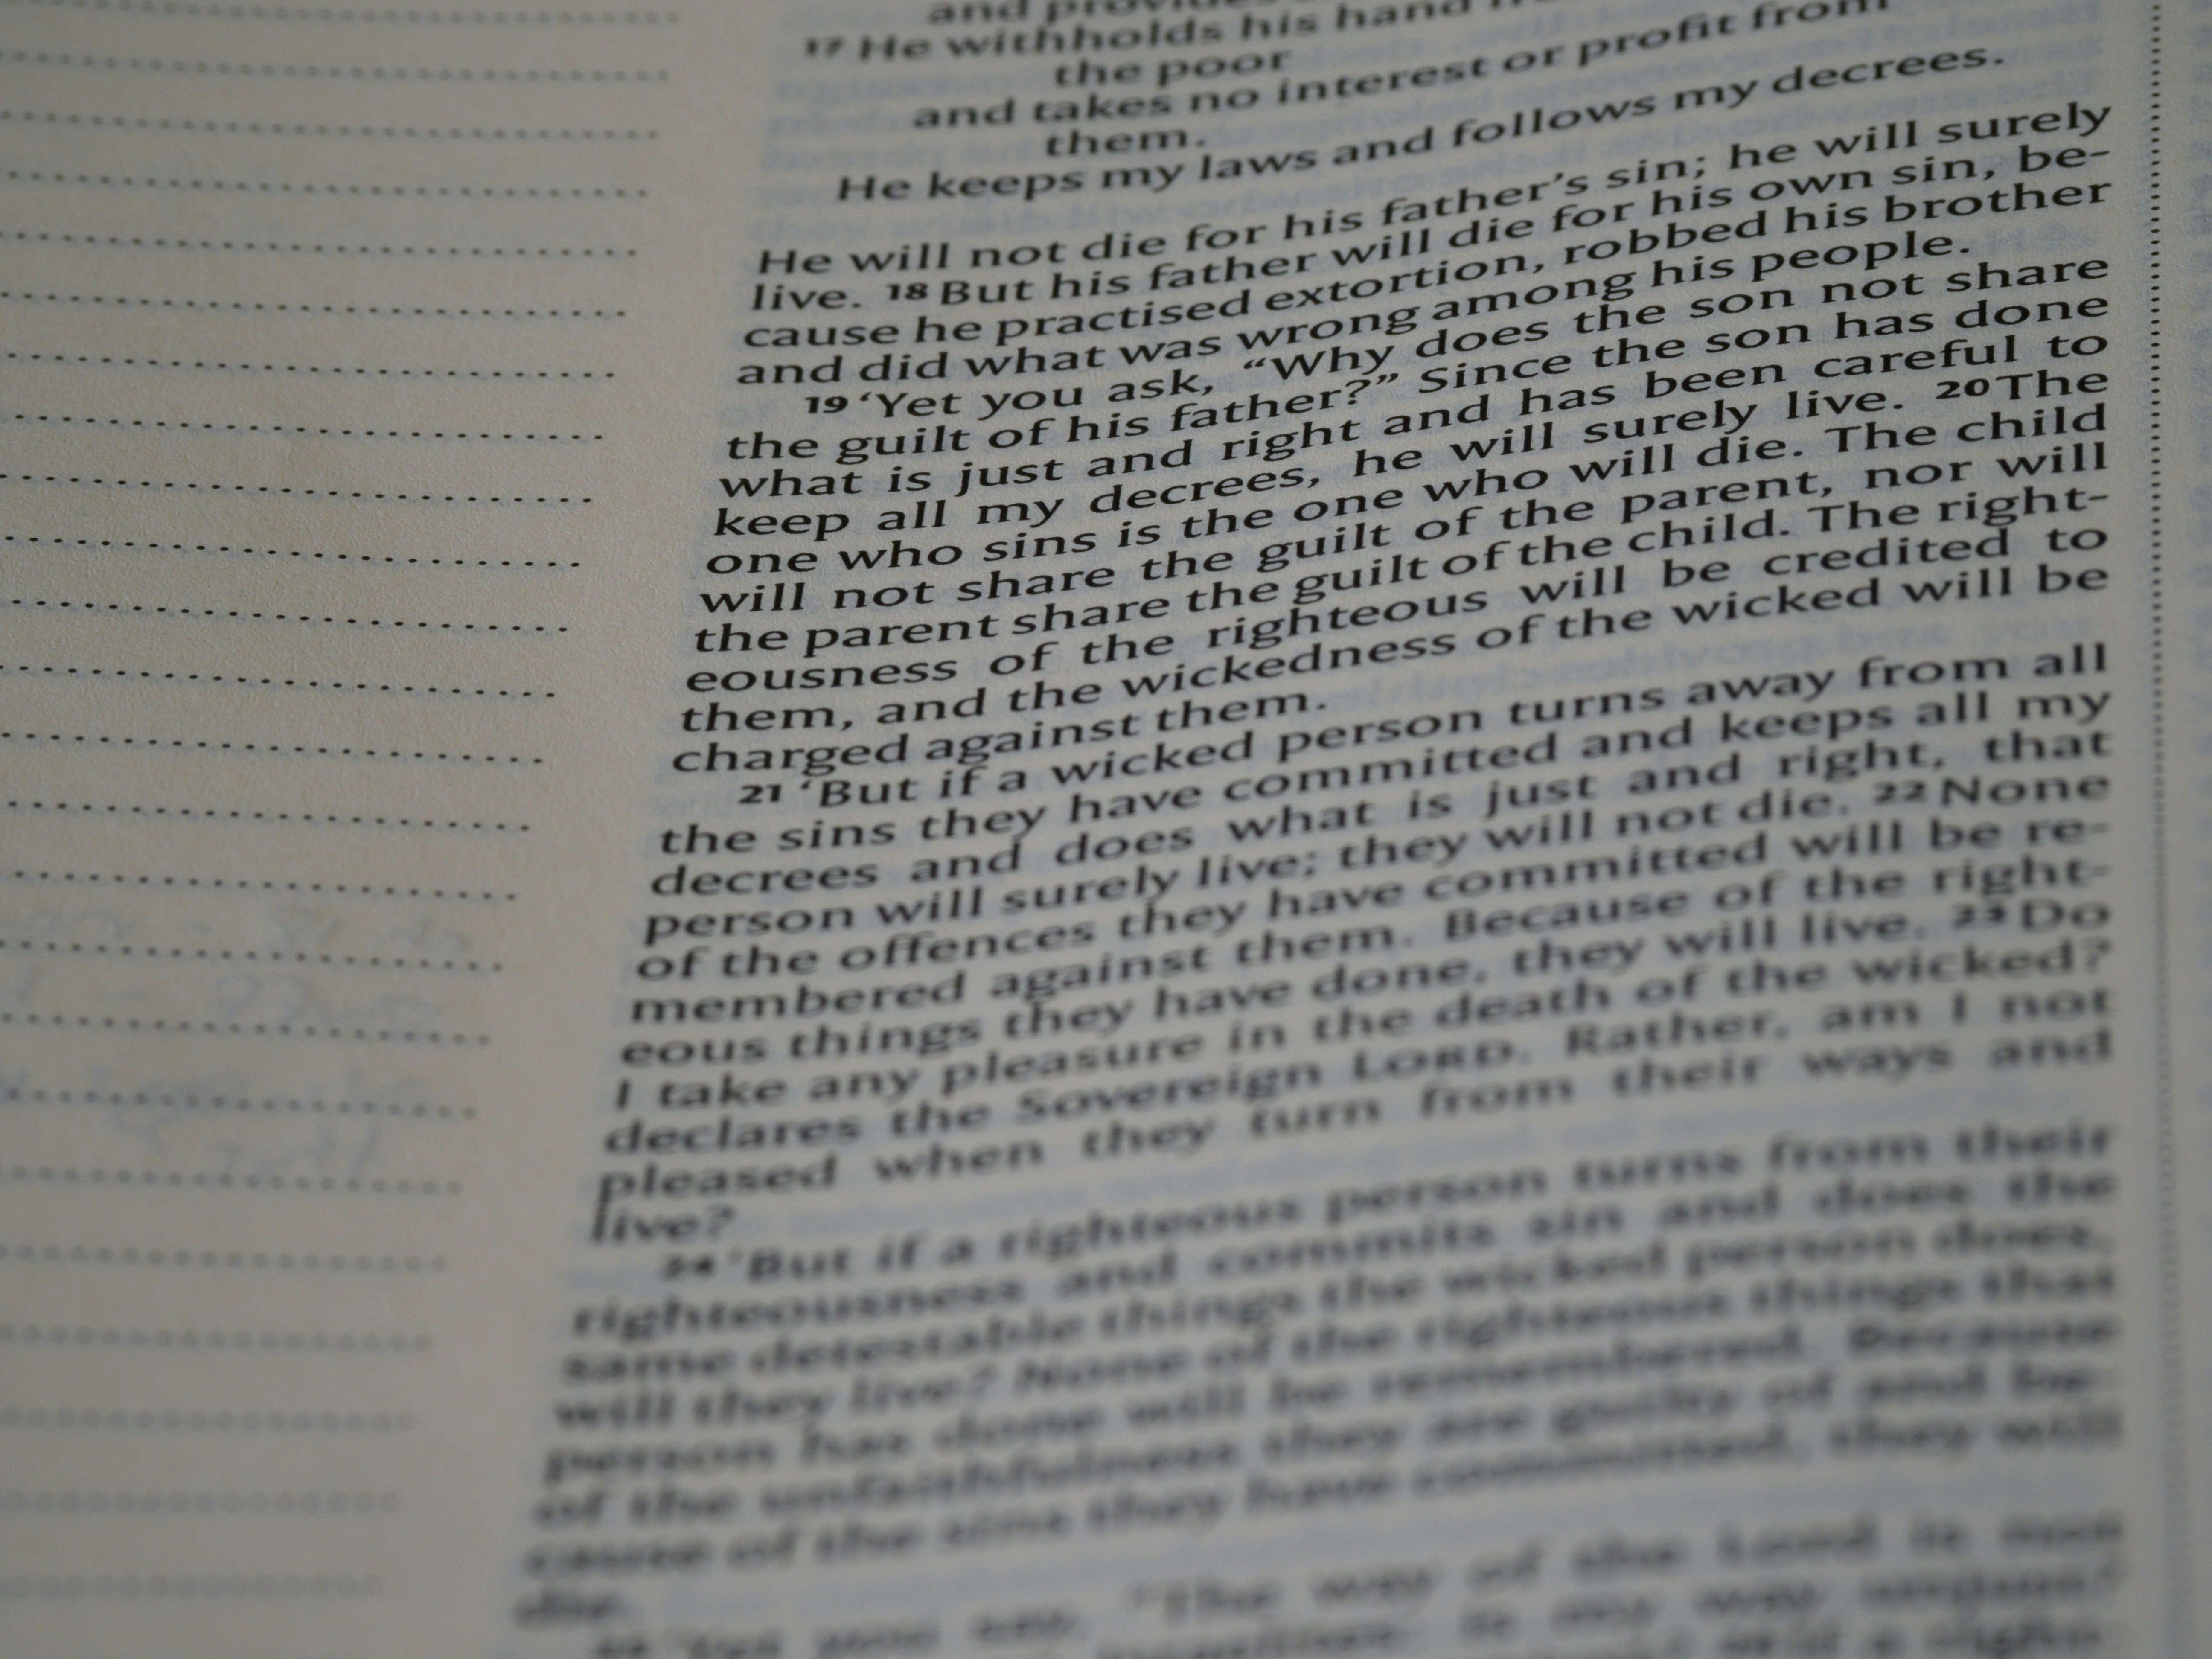 and provides
17 He withholds his hand
the poor
and takes no interest or profit from
them.
He keeps my laws and follows my decrees.
He will not die for his father's sin; he will surely
live. 18 But his father will die for his own sin, be-
cause he practised extortion, robbed his brother
and did what was wrong among his people.
19 ‘Yet you ask, “Why does the son not share
the guilt of his father?” Since the son has done
what is just and right and has been careful to
keep all my decrees, he will surely live. 20 The
one who sins is the one who will die. The child
will not share the guilt of the parent, nor will
the parent share the guilt of the child. The right-
eousness of the righteous will be credited to
them, and the wickedness of the wicked will be
charged against them.
21 ‘But if a wicked person turns away from all
the sins they have committed and keeps all my
decrees and does what is just and right, that
person will surely live; they will not die. 22 None
of the offences they have committed will be re-
membered against them. Because of the right-
eous things they have done, they will live. 23 Do
I take any pleasure in the death of the wicked?
declares the Sovereign LORD. Rather, am I not
pleased when they turn from their ways and
live?
24 ‘But if a righteous person turns from their
righteousness and commits sin and does the
same detestable things the wicked person does,
will they live? None of the righteous things that
person has done will be remembered. Because
of the unfaithfulness they are guilty of and be-
cause of the sins they have committed, they will
die.
25 ‘Yet you say, “The way of the Lord is not